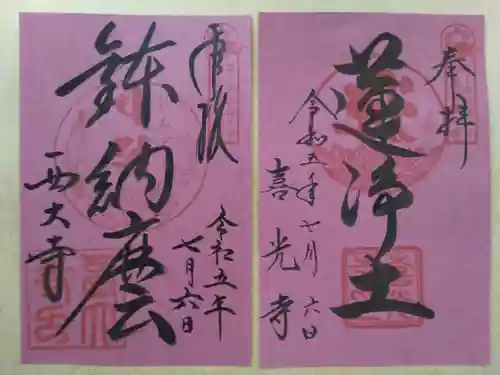 奉拝
蓮浄土
令和五年七月六日
喜光寺
鉢納麼
令和五年
七月六日
西大寺